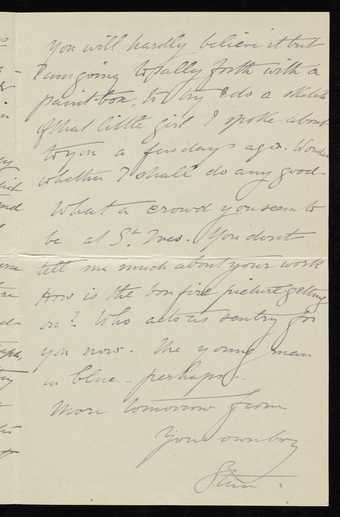 You will hardly believe it but
I am going to sally forth with a
paint-box, to try & do a sketch
of that little girl I spoke about
to you a few days ago. Wonder
whether I shall do any good.
What a crowd you seem to
be at St. Ives. You don't
tell me much about your work
How is the bonfire picture getting
on? Who acts as sentry for
you now. The young man
in blue - perhaps.
More tomorrow from
Your own boy